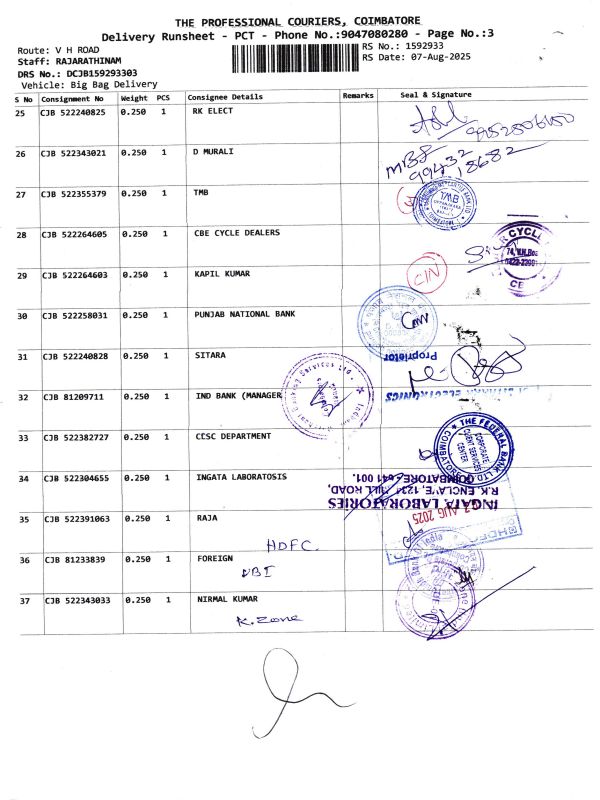 THE PROFESSIONAL COURIERS, COIMBATORE
Delivery Runsheet - PCT - Phone No.:9047080280 - Page No.:3
Route: V H ROAD
RS No.: 1592933
Staff: RAJARATHINAM
RS Date: 07-Aug-2025
DRS No.: DCJB159293303
Vehicle: Big Bag Delivery
S No Consignment No Weight PCS Consignee Details Remarks Seal & Signature
25 CJB 522240825 0.250 1 RK ELECT
26 CJB 522343021 0.250 1 D MURALI
99432 18682
27 CJB 522355379 0.250 1 TMB
TMB
28 CJB 522264605 0.250 1 CBE CYCLE DEALERS
CYCLE
29 CJB 522264603 0.250 1 KAPIL KUMAR
CIN
30 CJB 522258031 0.250 1 PUNJAB NATIONAL BANK
31 CJB 522240828 0.250 1 SITARA
Proprietor
32 CJB 81209711 0.250 1 IND BANK (MANAGER
ELECTRONICS
33 CJB 522382727 0.250 1 CCSC DEPARTMENT
THE FEDERAL BANK LTD
COIMBATORE
CORPORATE
CLIENT SERVICES
CENTER
34 CJB 522304655 0.250 1 INGATA LABORATOSIS
INGATA LABORATORIES
R.K. ENCLAVE, MILL ROAD,
COIMBATORE - 641 001.
35 CJB 522391063 0.250 1 RAJA
AUG 2025
HDFC.
HDFC
36 CJB 81233839 0.250 1 FOREIGN
UBI
37 CJB 522343033 0.250 1 NIRMAL KUMAR
K. Zone